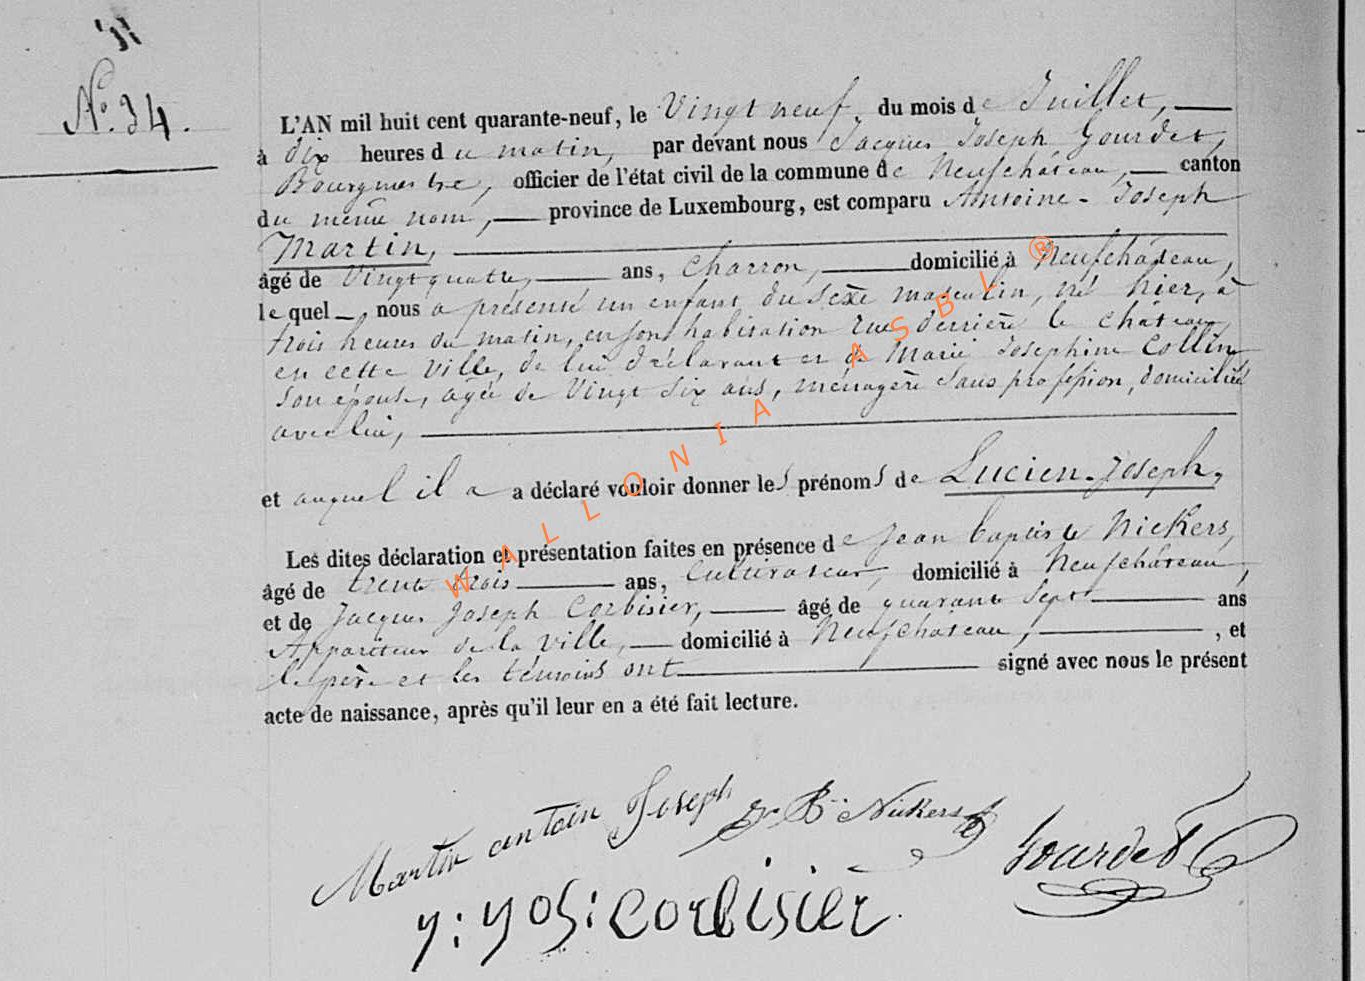 N.º 34.
L'AN mil huit cent quarante-neuf, le Vingt neuf du mois de Juillet,
à dix heures du matin, par devant nous Jacques Joseph Gourdet,
Bourgmestre, officier de l'état civil de la commune de Neufchâteau, canton
du même nom, province de Luxembourg, est comparu Antoine-Joseph
Martin,
âgé de Vingt quatre, ans, Charron, domicilié à Neufchâteau,
lequel nous a présenté un enfant du sexe masculin, né hier, à
trois heures du matin, en son habitation rue derrière le château,
en cette Ville, de lui déclarant et de Marie Josephine Collin
son épouse, agée de Vingt Six ans, ménagère sans profession, domiciliée
avec lui,
et auquel il a a déclaré vouloir donner les prénoms de Lucien-Joseph,
Les dites déclaration et présentation faites en présence de Jean baptiste Nickers,
âgé de trente trois ans, Cultivateur, domicilié à Neufchâteau,
et de Jacques Joseph Corbisier, âgé de quarante Sept ans
Appariteur de la Ville, domicilié à Neufchateau, , et
le père et les témoins ont signé avec nous le présent
acte de naissance, après qu'il leur en a été fait lecture.
Martin antoin Joseph Jn Bte Nickers Gourdet
y: yos: corbisier.
WALLONIA ASBL ®